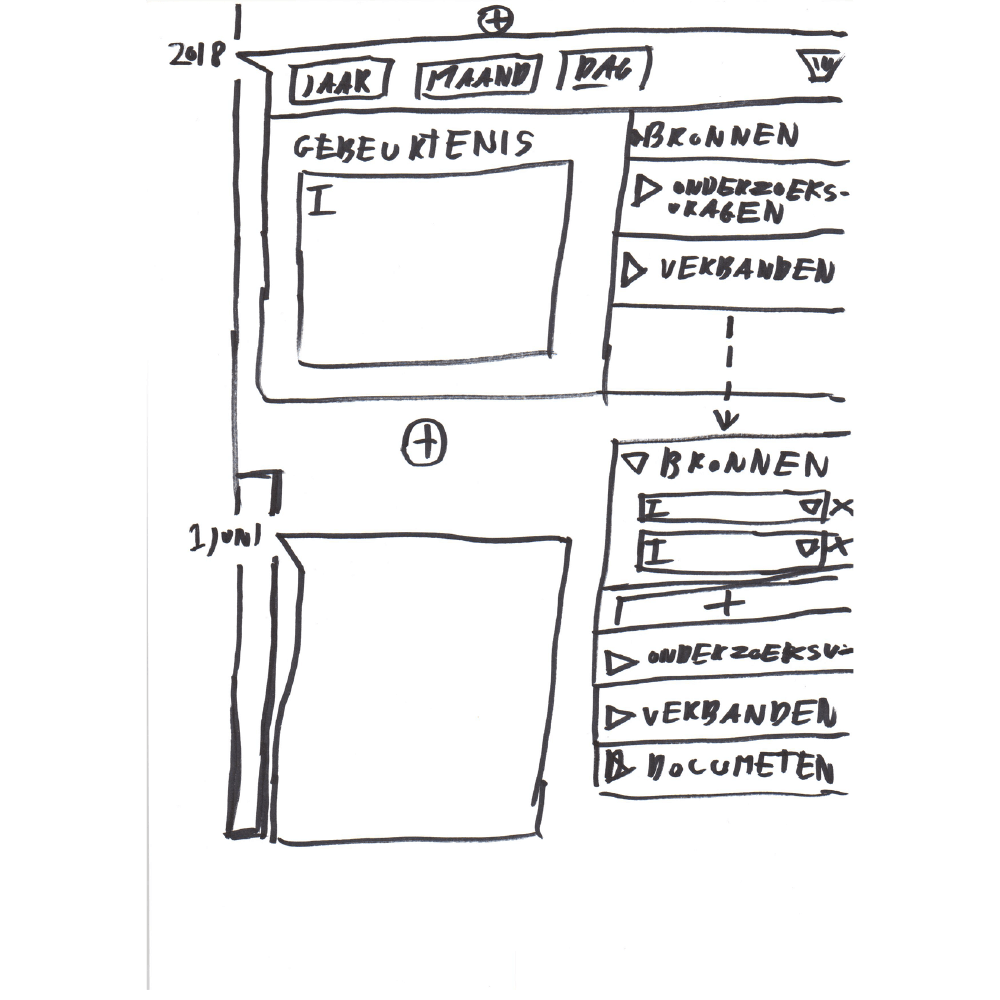 2018
JAAR MAAND DAG
GEBEURTENIS
I
BRONNEN
ONDERZOEKS-
VRAGEN
VERBANDEN
1 JUNI
BRONNEN
I X
I X
+
ONDERZOEKSV-
VERBANDEN
DOCUMETEN